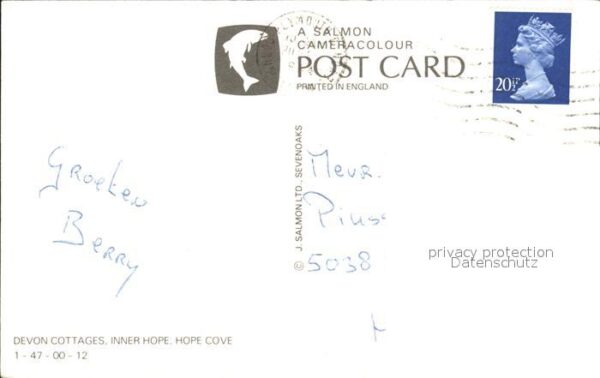 A SALMON
CAMERACOLOUR
POST CARD
PRINTED IN ENGLAND
20½P
Groeten
Berry
© J. SALMON LTD., SEVENOAKS
Mevr.
Pius
5038
privacy protection
Datenschutz
DEVON COTTAGES, INNER HOPE, HOPE COVE
1 - 47 - 00 - 12